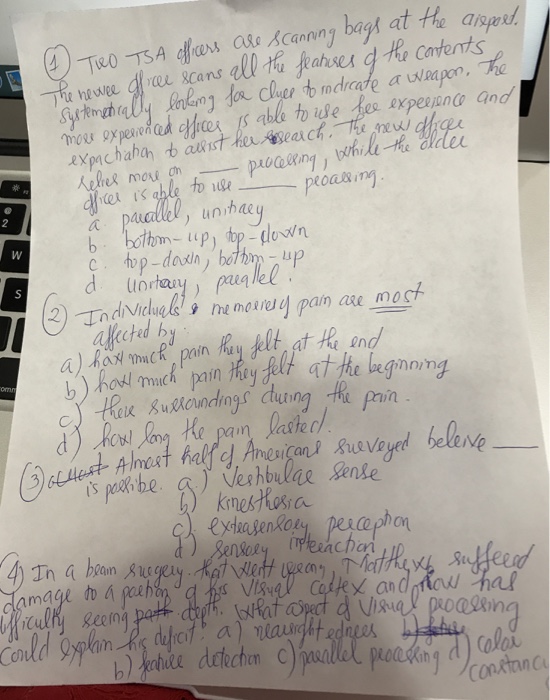 ① Two TSA officers are scanning bags at the airport.
The newer officer scans all the features of the contents
systematically looking for clues to indicate a weapon. The
more experienced officer is able to use her experience and
expectation to assist her search. The new officer
relies more on ____ processing, while the older
officer is able to use ____ processing.
a parallel, unitary
b. bottom-up, top-down
c. top-down, bottom-up
d. unitary, parallel.
② Individuals' memories of pain are most
affected by:
a) how much pain they felt at the end
b) how much pain they felt at the beginning
c) there surroundings during the pain.
d) how long the pain lasted.
③ Almost half of Americans surveyed beleive ____
is possibe. a) Vestibular sense
b) kinesthesia
c) extrasensory perception
d) Sensory interaction
4) In a brain surgery that went wrong, Matthew suffered
damage to a portion of his visual cortex and now has
difficulty seeing depth. What aspect of visual processing
could explain his deficit? a) nearsightedness
b) feature detection c) parallel processing d) color
constancy
* "
2
W
S